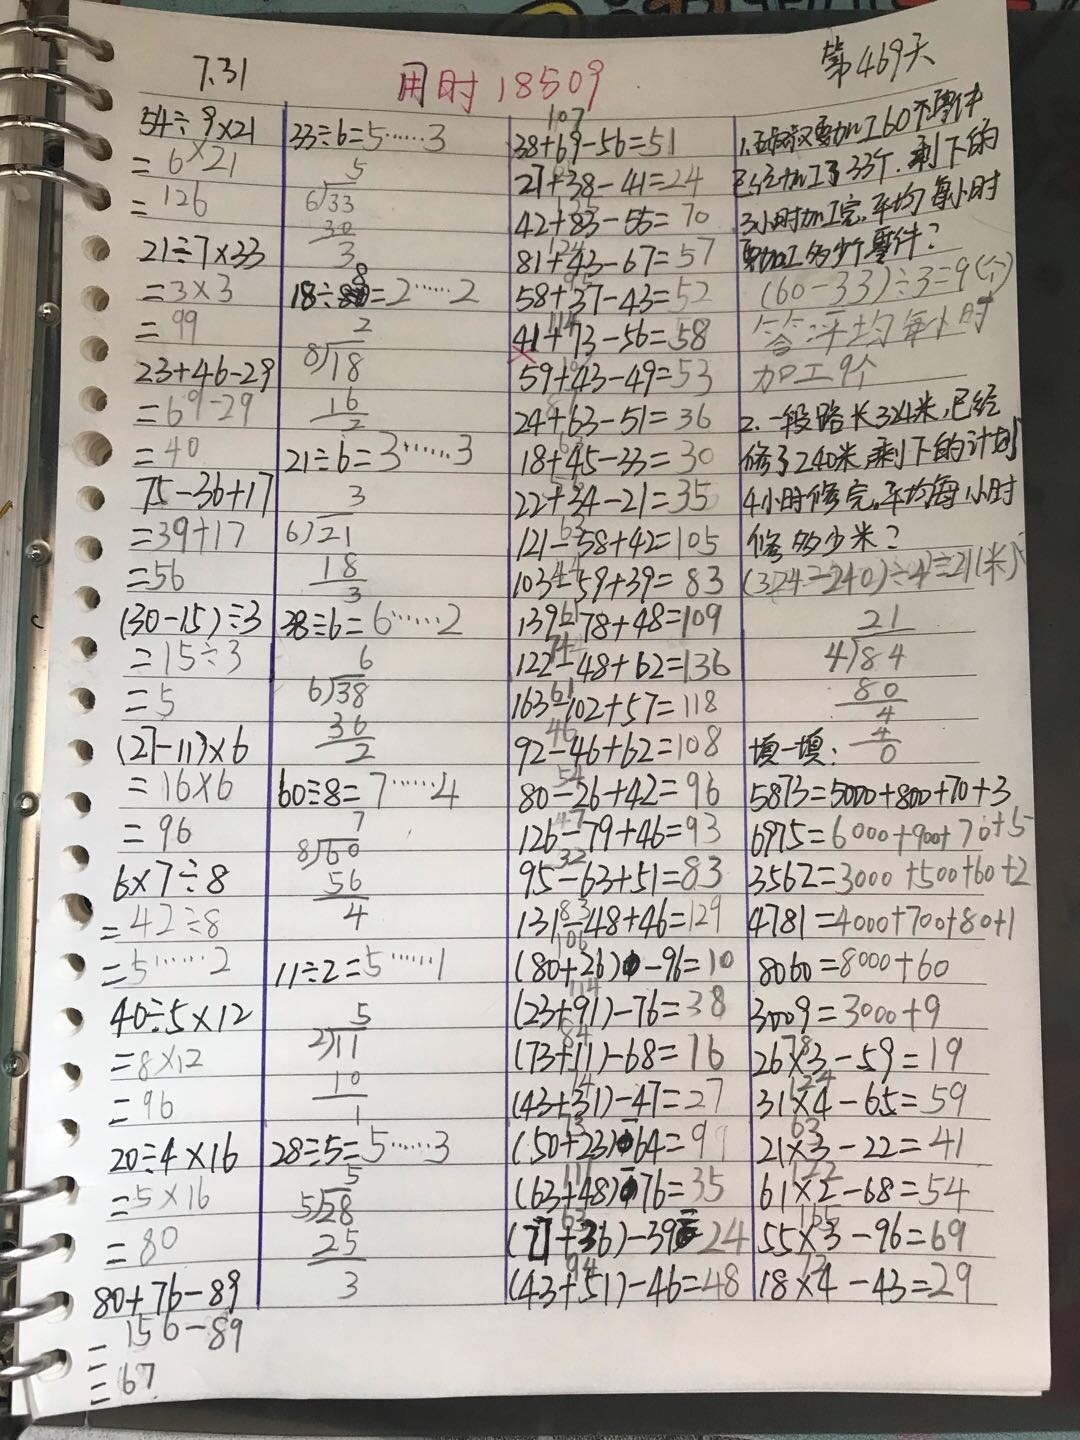 7.31
用时18509
第469天
54÷9×21
=6×21
=126
21÷7×33
=3×3
=99
23+46-29
=69-29
=40
75-36+17
=39+17
=56
(30-15)÷3
=15÷3
=5
(27-11)×6
=16×6
=96
6×7÷8
=42÷8
=5……2
40÷5×12
=8×12
=96
20÷4×16
=5×16
=80
80+76-89
=156-89
=67
33÷6=5……3
5
6)33
30
3
18÷8=2……2
2
8)18
16
2
21÷6=3……3
3
6)21
18
3
38÷6=6……2
6
6)38
36
2
60÷8=7……4
7
8)60
56
4
11÷2=5……1
5
2)11
10
1
28÷5=5……3
5
5)28
25
3
107
38+69-56=51
27+38-41=24
42+83-55=70
124
81+43-67=57
95
58+37-43=52
114
41+73-56=58
59+43-49=53
87
24+63-51=36
63
18+45-33=30
22+34-21=35
63
121-58+42=105
44
103-59+39=83
61
139-78+48=109
74
122-48+62=136
61
163-102+57=118
46
92-46+62=108
54
80-26+42=96
47
126-79+46=93
32
95-63+51=83
83
131-48+46=129
106
(80+26)-96=10
114
(23+91)-76=38
84
(73+11)-68=16
74
(43+31)-47=27
73
(50+23)-64=9
111
(63+48)-76=35
63
(27+36)-39=24
94
(43+51)-46=48
1.叔叔要加工60个零件
已经加工了33个.剩下的
3小时加工完.平均每小时
要加工多少个零件?
(60-33)÷3=9(个)
答:平均每小时
加工9个
2.一段路长324米,已经
修了240米,剩下的计划
4小时修完.平均每小时
修多少米?
(324-240)÷4=21(米)
21
4)84
80
4
4
0
填一填:
5873=5000+800+70+3
6975=6000+900+70+5
3562=3000+500+60+2
4781=4000+700+80+1
8060=8000+60
3009=3000+9
78
26×3-59=19
124
31×4-65=59
63
21×3-22=41
122
61×2-68=54
165
55×3-96=69
72
18×4-43=29